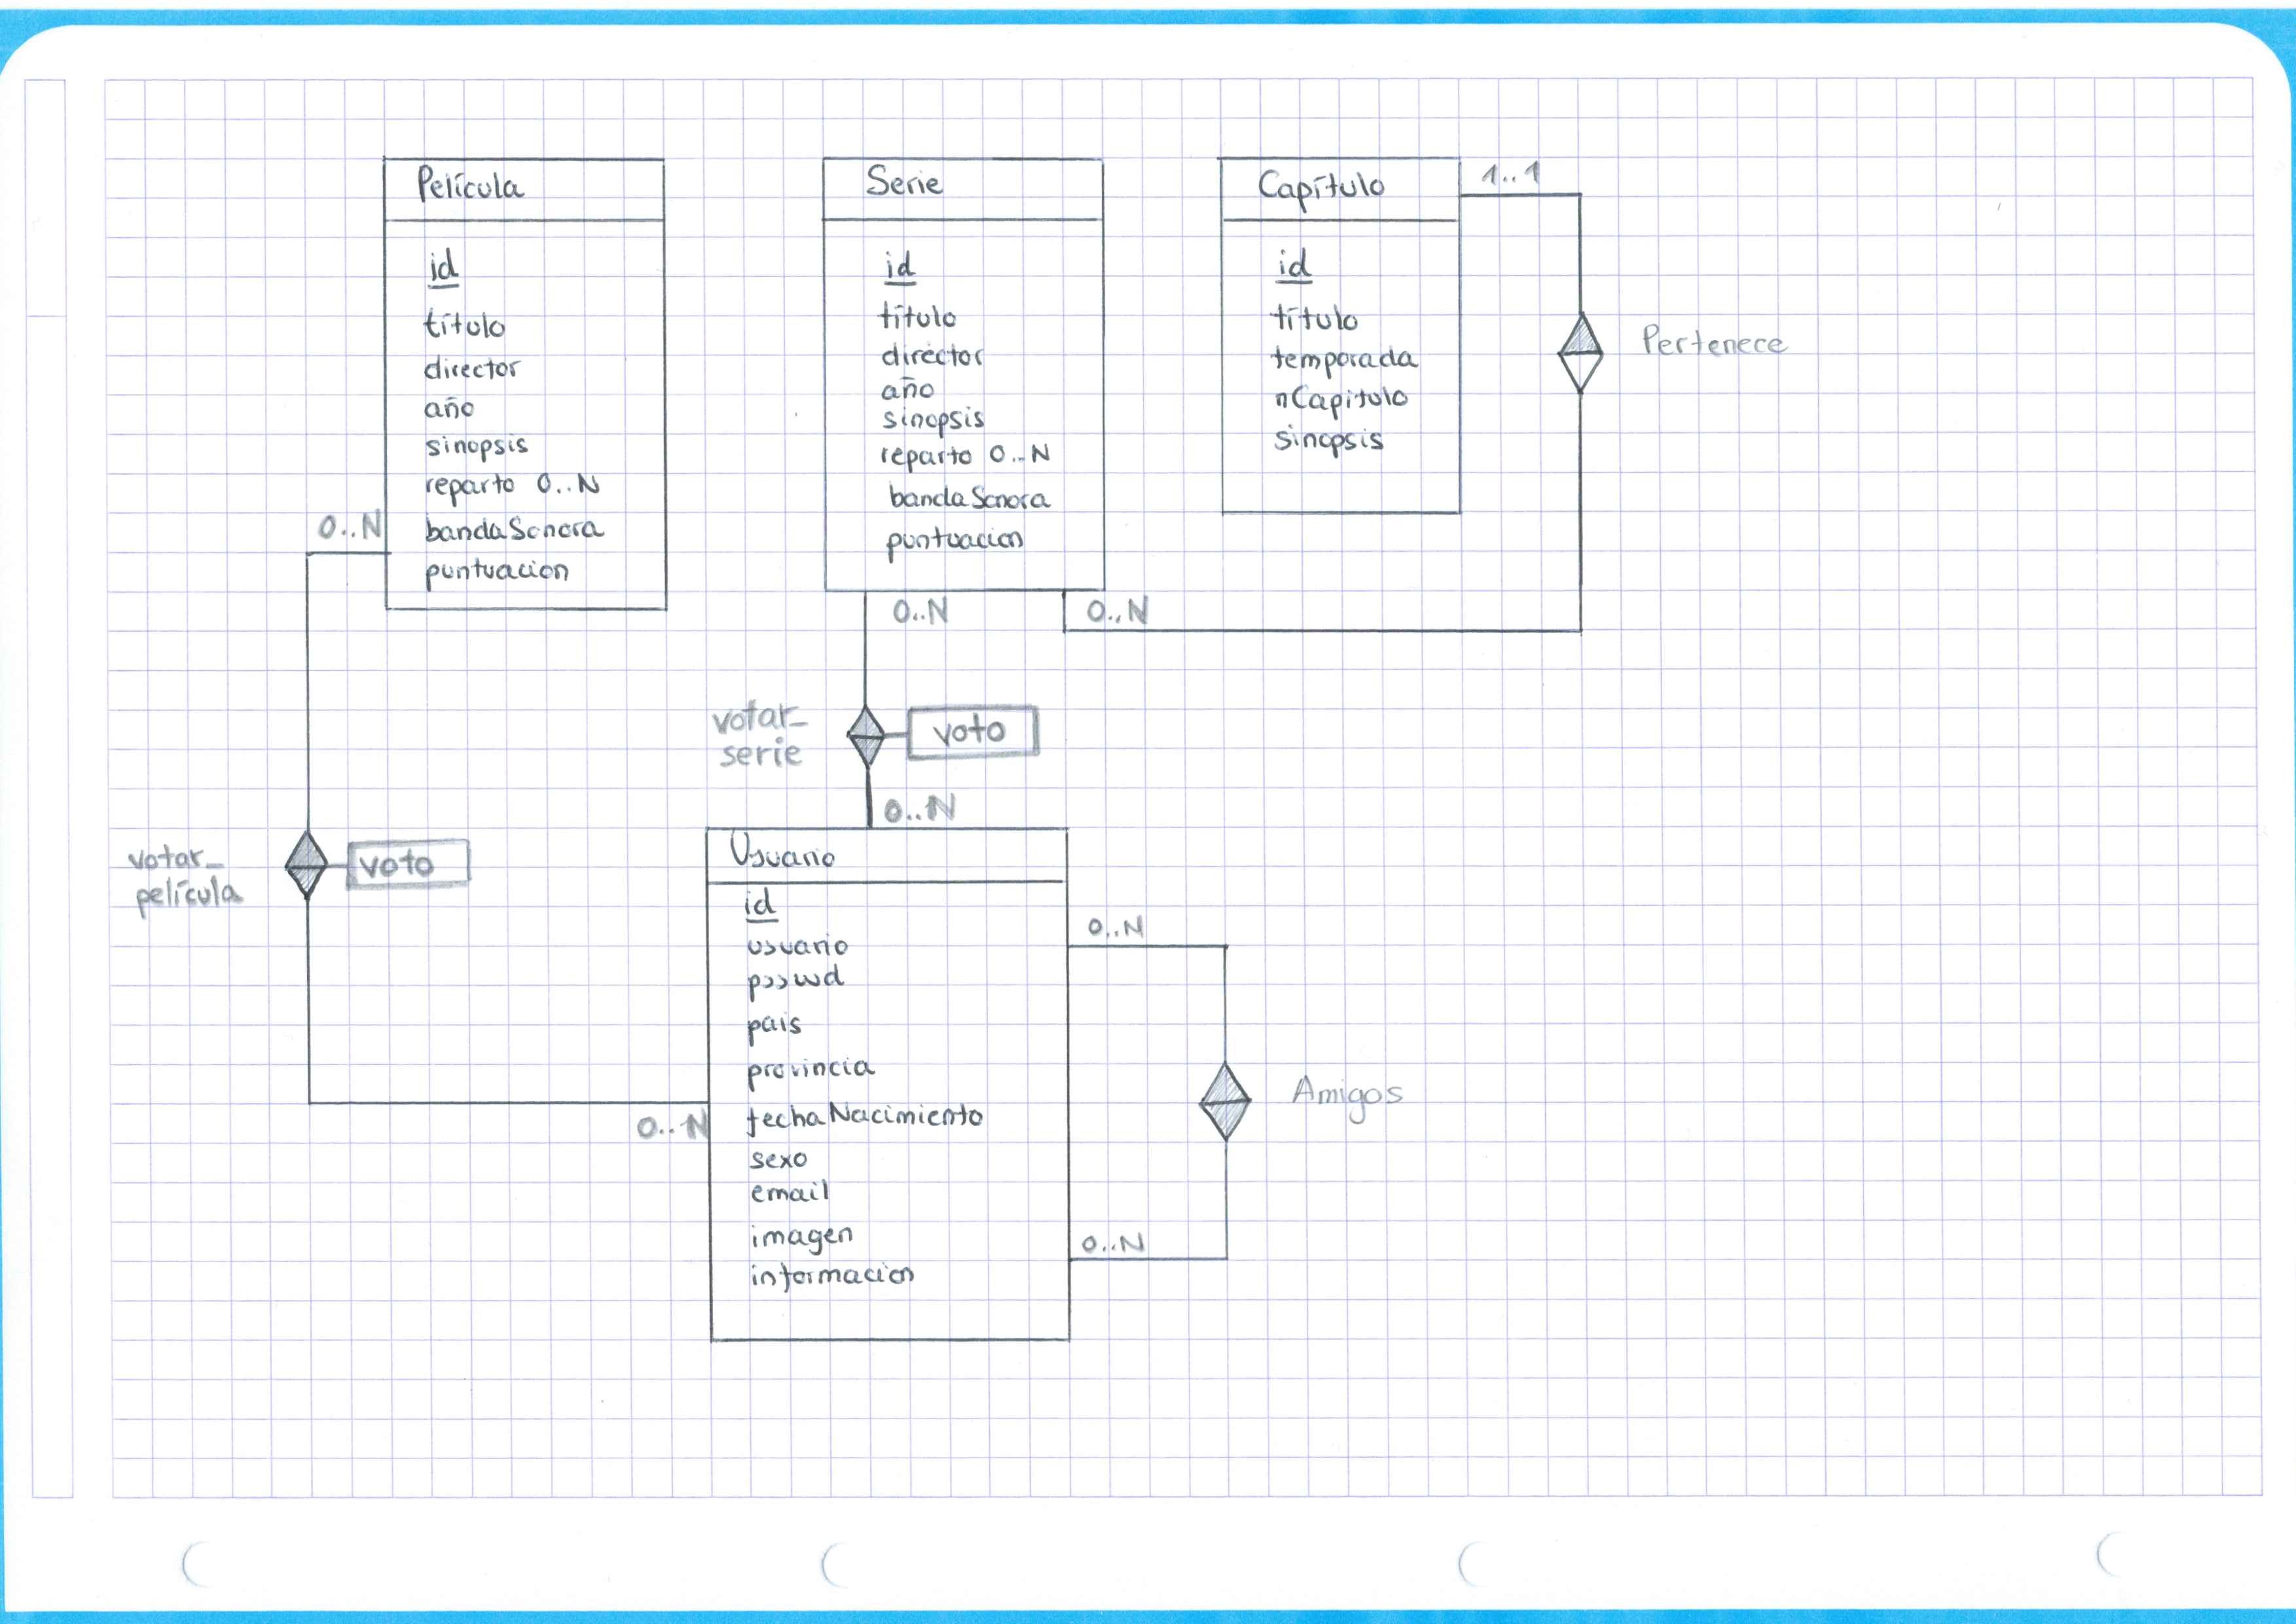 Película
id
título
director
año
sinopsis
reparto 0..N
bandaSonora
puntuación
0..N
Serie
id
título
director
año
sinopsis
reparto 0..N
bandaSonora
puntuacion
0..N
0..N
Capítulo
id
título
temporada
nCapitulo
sinopsis
1..1
Pertenece
votar_
serie
voto
0..N
votar_
película
voto
0..N
Usuario
id
usuario
psswd
pais
provincia
fechaNacimiento
sexo
email
imagen
informacion
0..N
Amigos
0..N